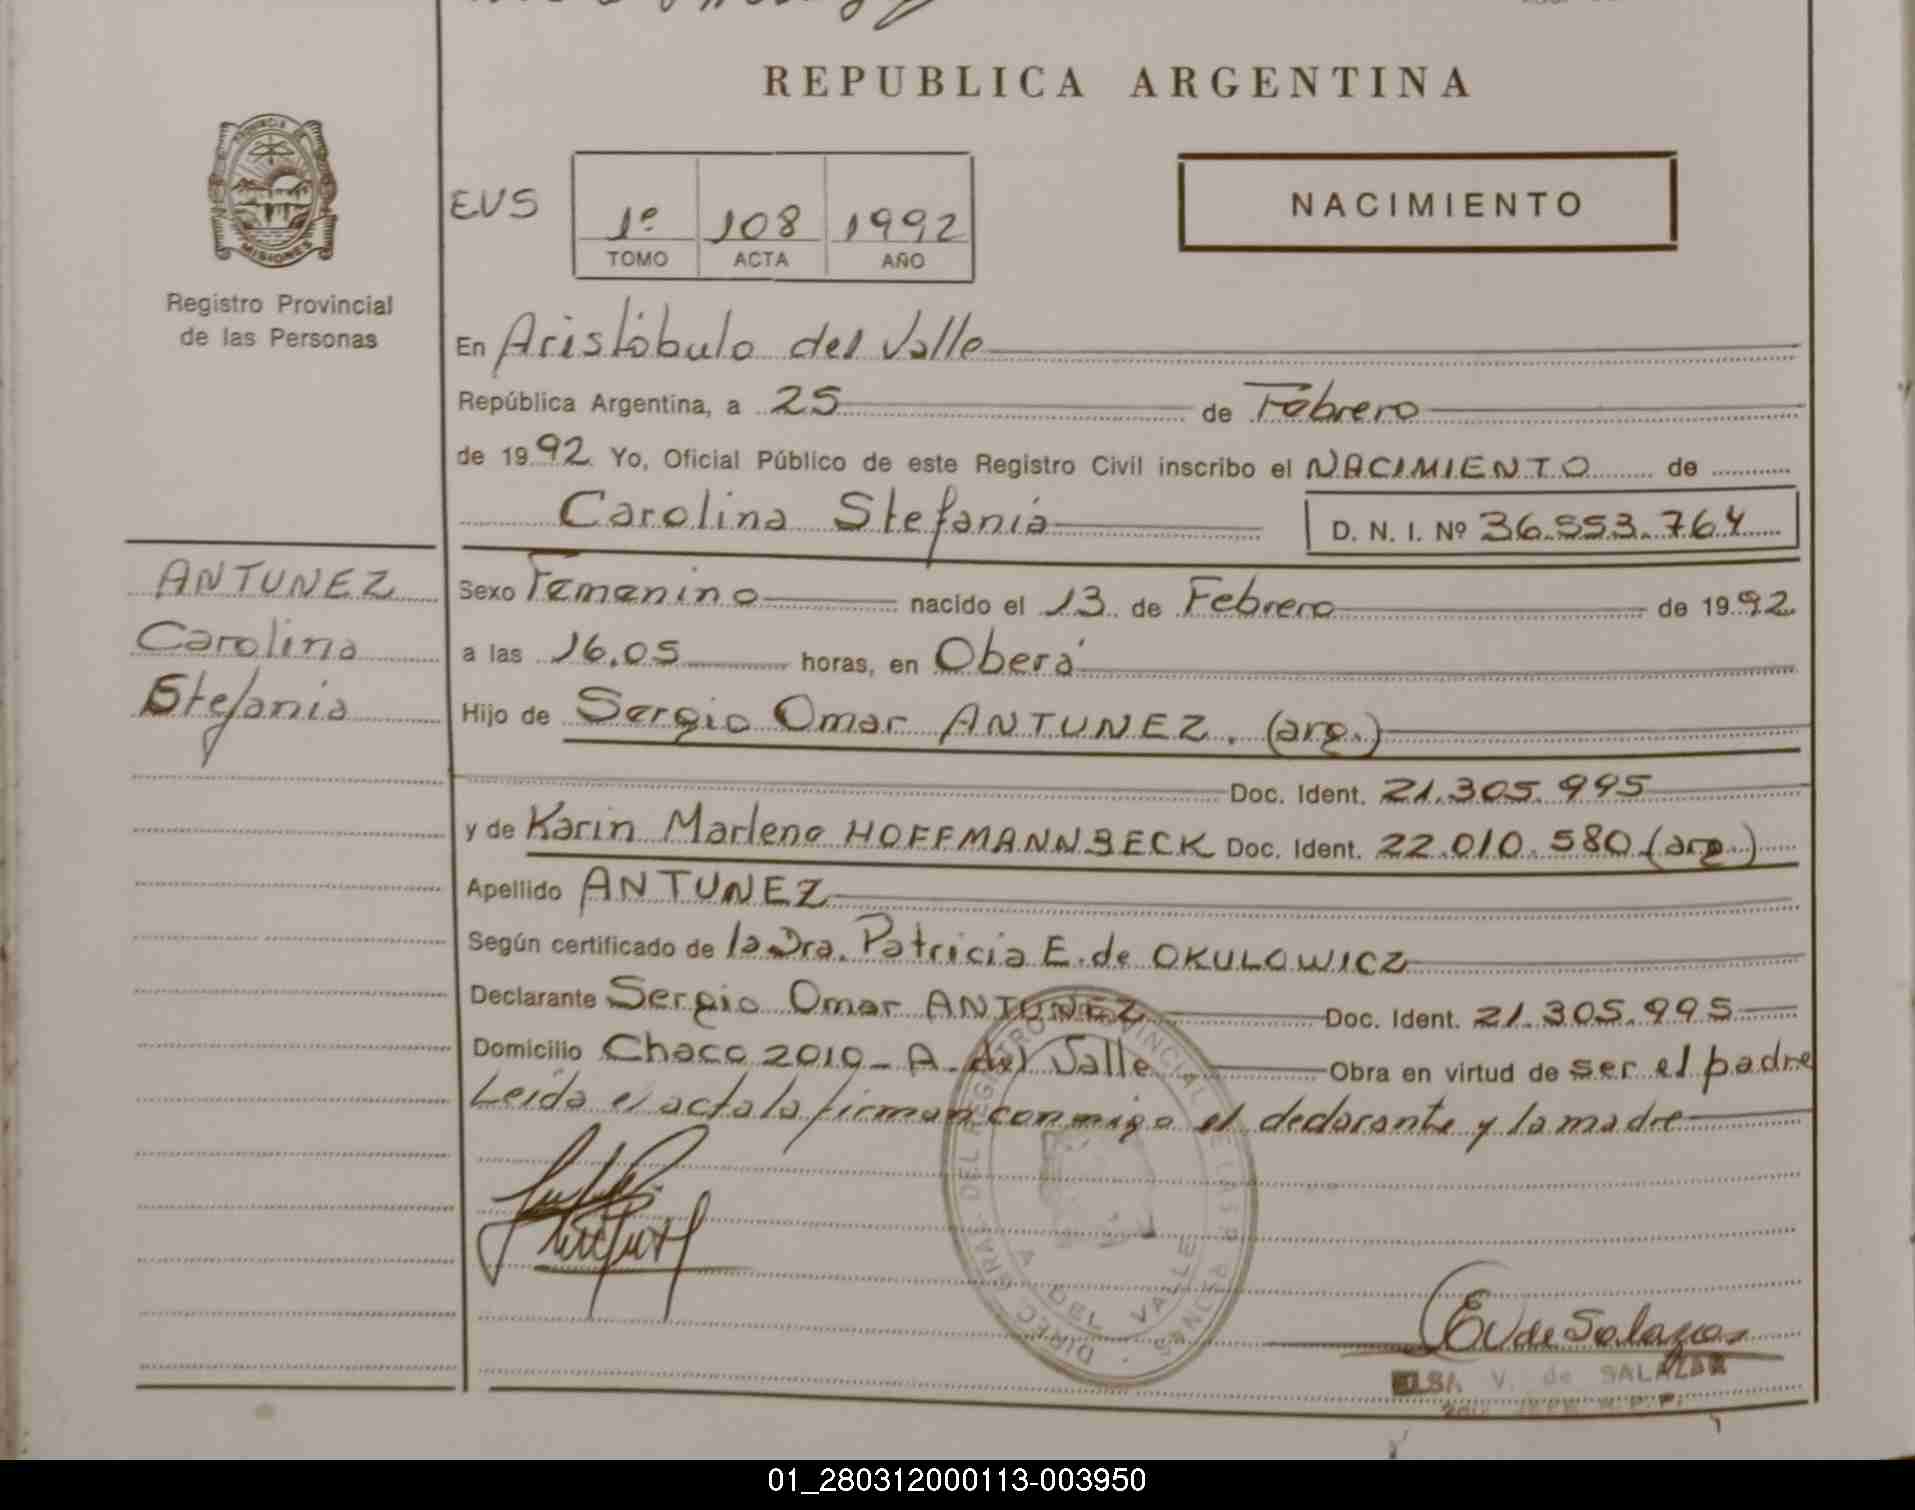 REPUBLICA ARGENTINA
PROVINCIA DE
MISIONES
Registro Provincial
de las Personas
EVS
1º 108 1992
TOMO ACTA AÑO
NACIMIENTO
En Aristóbulo del Valle
República Argentina, a 25 de Febrero
de 1992 Yo, Oficial Público de este Registro Civil inscribo el NACIMIENTO de
Carolina Stefania D. N. I. Nº 36.553.764
ANTUNEZ
Carolina
Stefania
Sexo Femenino nacido el 13 de Febrero de 1992
a las 16.05 horas, en Oberá
Hijo de Sergio Omar ANTUNEZ. (arg.)
Doc. Ident. 21.305.995
y de Karin Marlene HOFFMANNBECK Doc. Ident. 22.010.580 (arg.)
Apellido ANTUNEZ
Según certificado de la Dra. Patricia E. de OKULOWICZ
Declarante Sergio Omar ANTUNEZ Doc. Ident. 21.305.995
Domicilio Chaco 2010 - A. del Valle Obra en virtud de ser el padre
Leída el acta la firman conmigo el declarante y la madre
DIREC. GRAL. DEL REGISTRO PROVINCIAL DE LAS PERSONAS
A. DEL VALLE
EV de Salazar
ELSA V. de SALAZAR
01_280312000113-003950